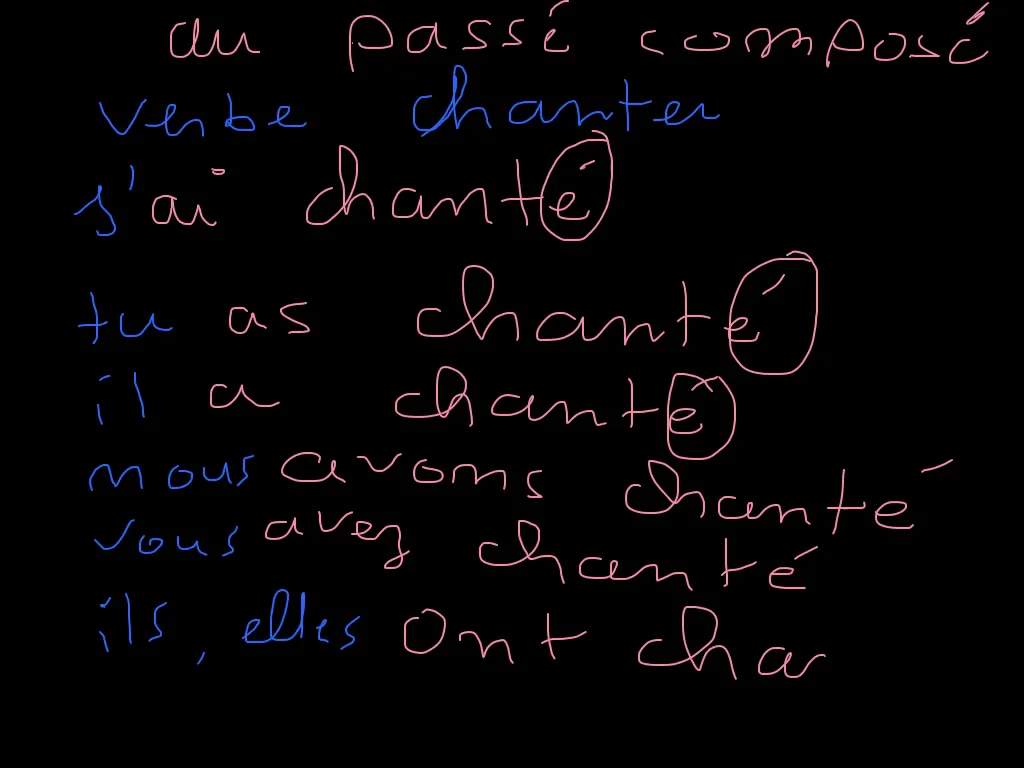 au passé composé
verbe chanter
j'ai chanté
tu as chanté
il a chanté
nous avons chanté
vous avez chanté
ils, elles ont cha